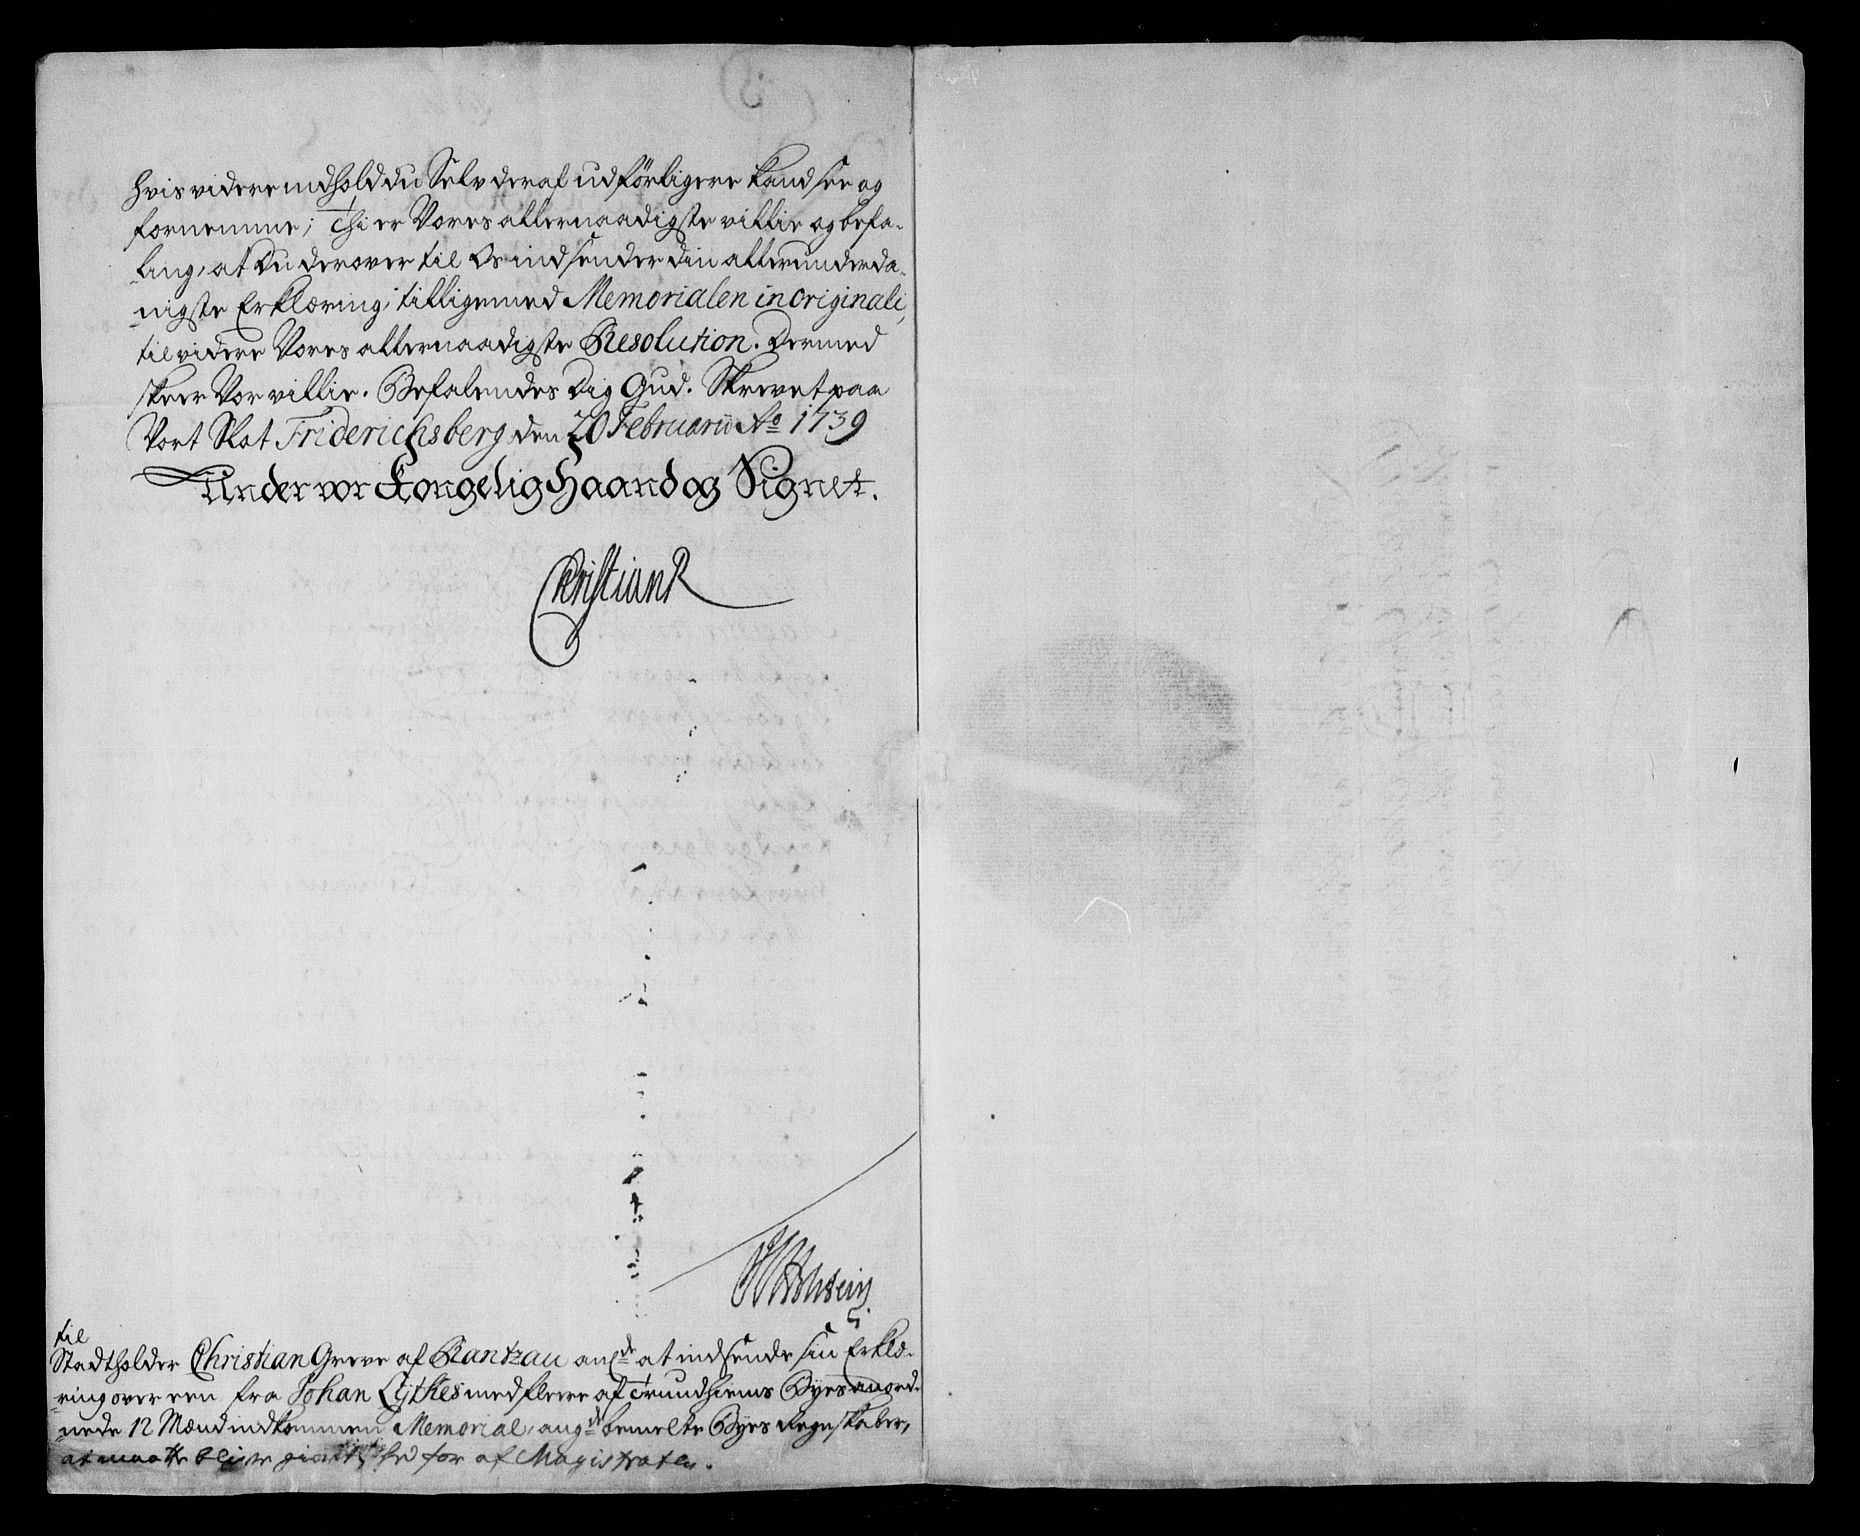 hvis videre indhold du Selv deraf udförligere kand see og
fornemme; Thi er Vores allernaadigste villie og befa-
ling, at Du derover til Os indsender din allerunderda-
nigste Erklæring, tilligemed Memorialen in originali,
til videre Vores allernaadigste Resolution. Dermed
skeer Vor villie. Befalendes Dig Gud. Skrevet paa
Vort Slot Friderichsberg den 20 Februarii Ao 1739
Under vor Kongelig Haand og Signet.
Christian R
JLHolstein
til
Stadtholder Christian Greve af Rantzau angde at indsende sin Erklæ-
ring over een fra Johan Lÿthes med fleere af Trundhiems Byes anord-
nede 12 Mænd indkommen Memorial, angde bemelte Byes Regnskaber,
at maatte blive for af Magistraten.